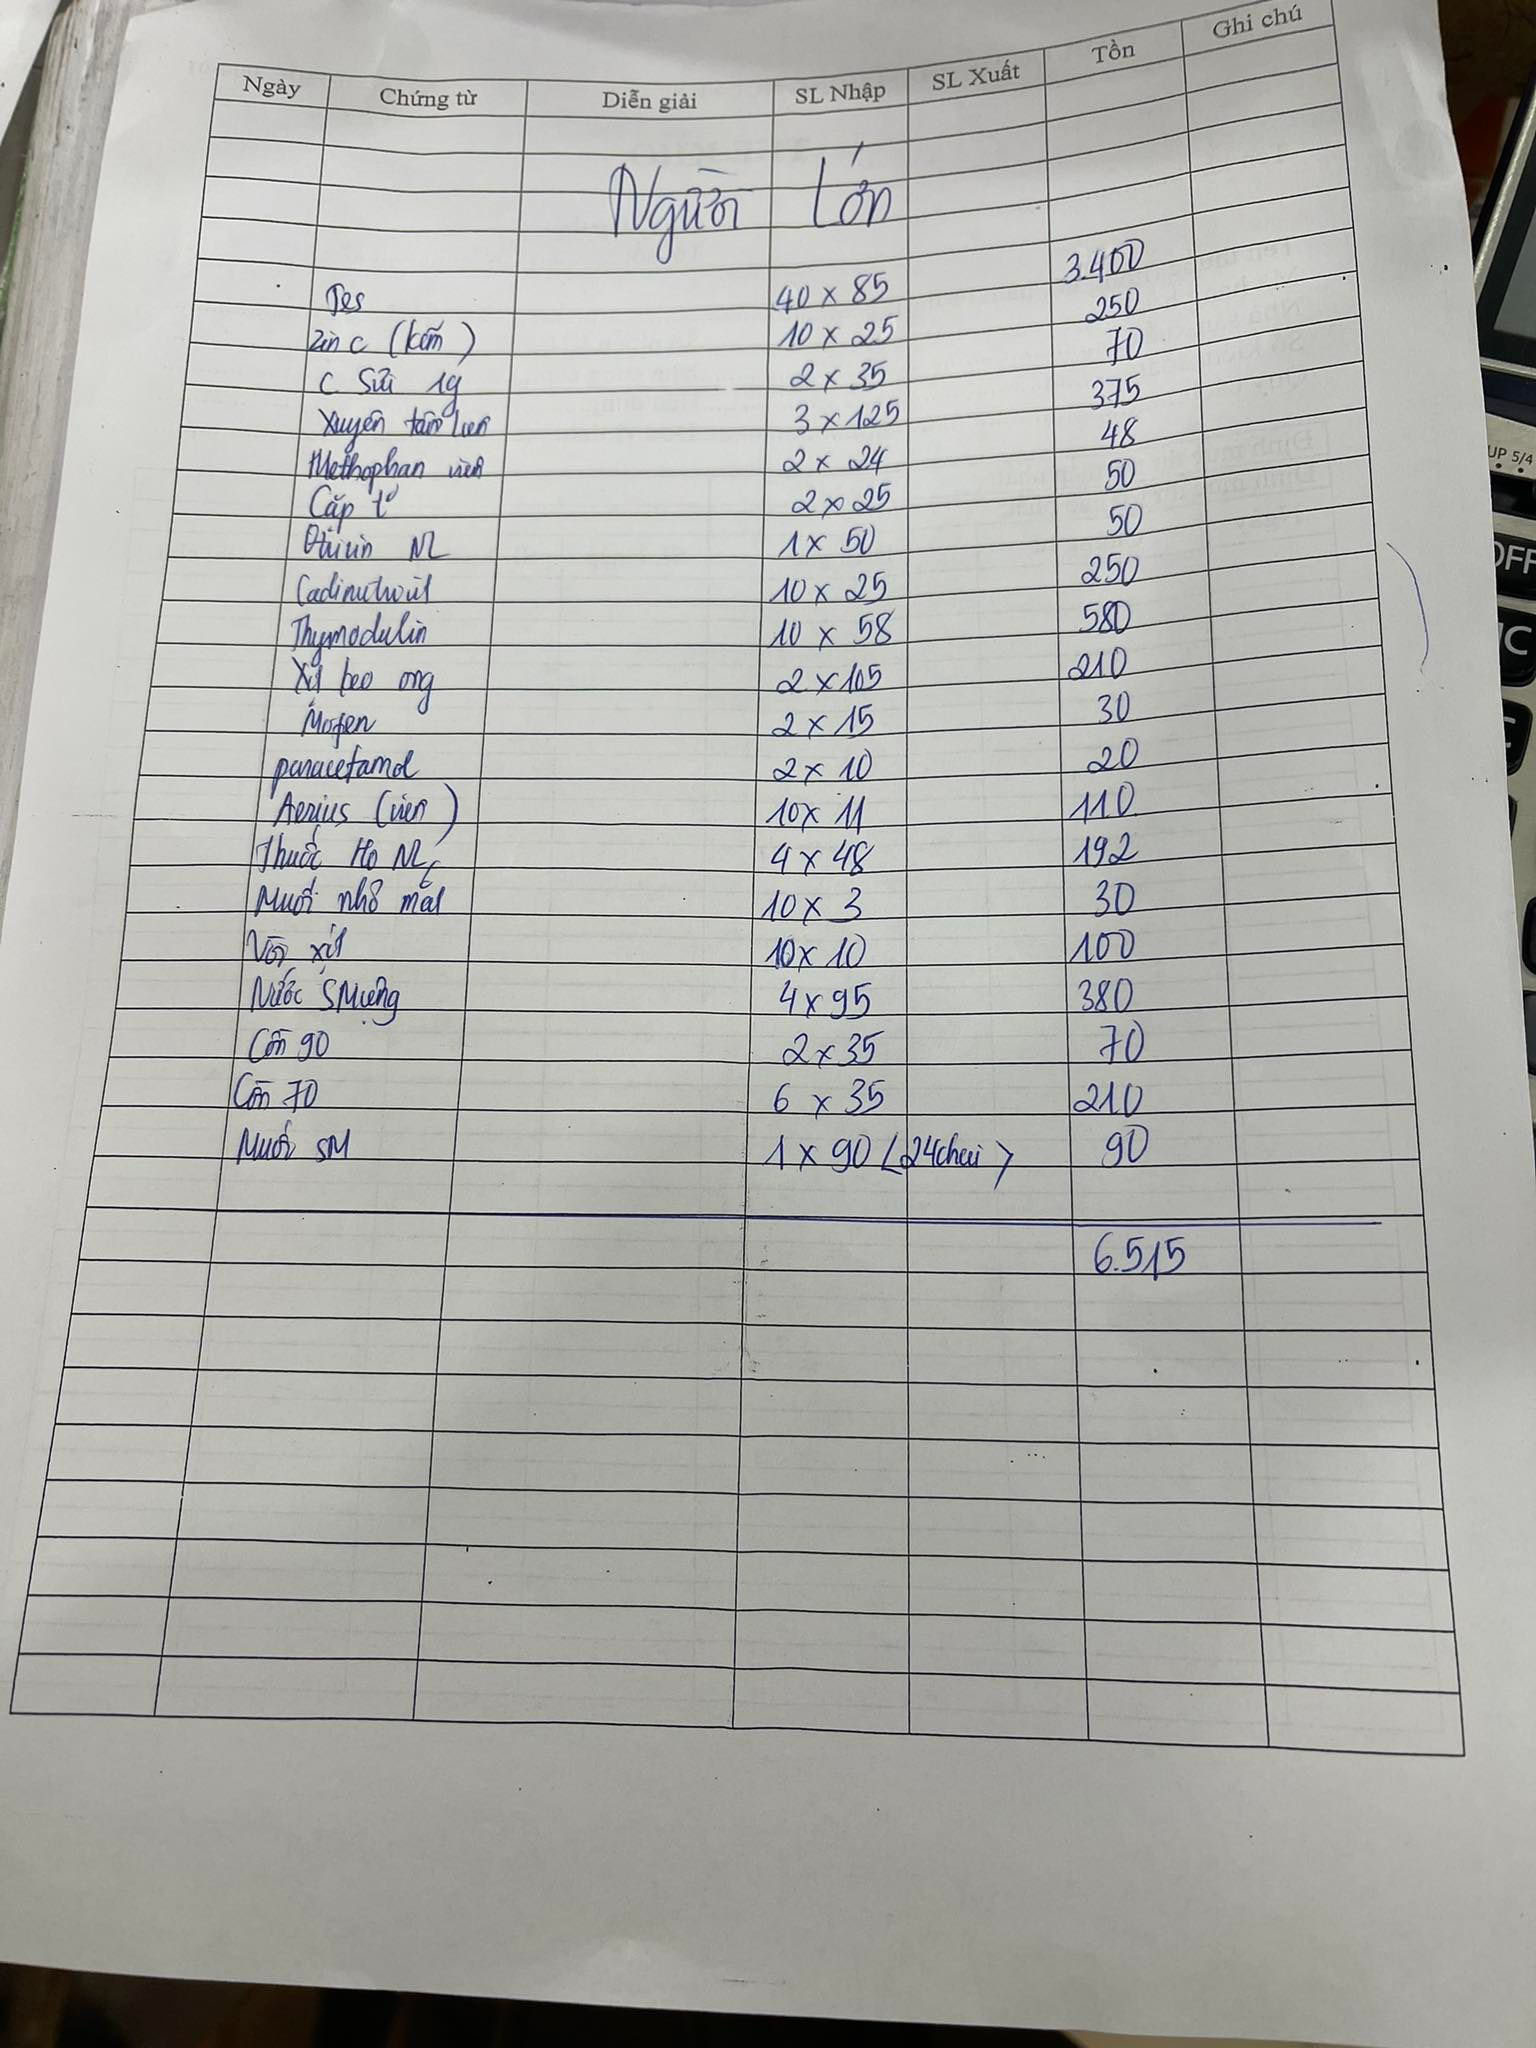 Ngày Chứng từ Diễn giải SL Nhập SL Xuất Tồn Ghi chú
Người Lớn
Tes 40 x 85 3.400
Zin c (kẽm) 10 x 25 250
C Sủi 1g 2 x 35 70
Xuyên tâm liên 3 x 125 375
Methophan viên 2 x 24 48
Cặp t° 2 x 25 50
NL 1 x 50 50
10 x 25 250
Thymodulin 10 x 58 580
Xịt keo ong 2 x 105 210
Mofen 2 x 15 30
paracetamol 2 x 10 20
Aerius (viên) 10 x 11 110
Thuốc Ho NL 4 x 48 192
Muối nhỏ mắt 10 x 3 30
Vòi xịt 10 x 10 100
Nước SMiệng 4 x 95 380
Cồn 90 2 x 35 70
Cồn 70 6 x 35 210
Muối SM 1 x 90 (24chai) 90
6.515
UP 5/4
OFF